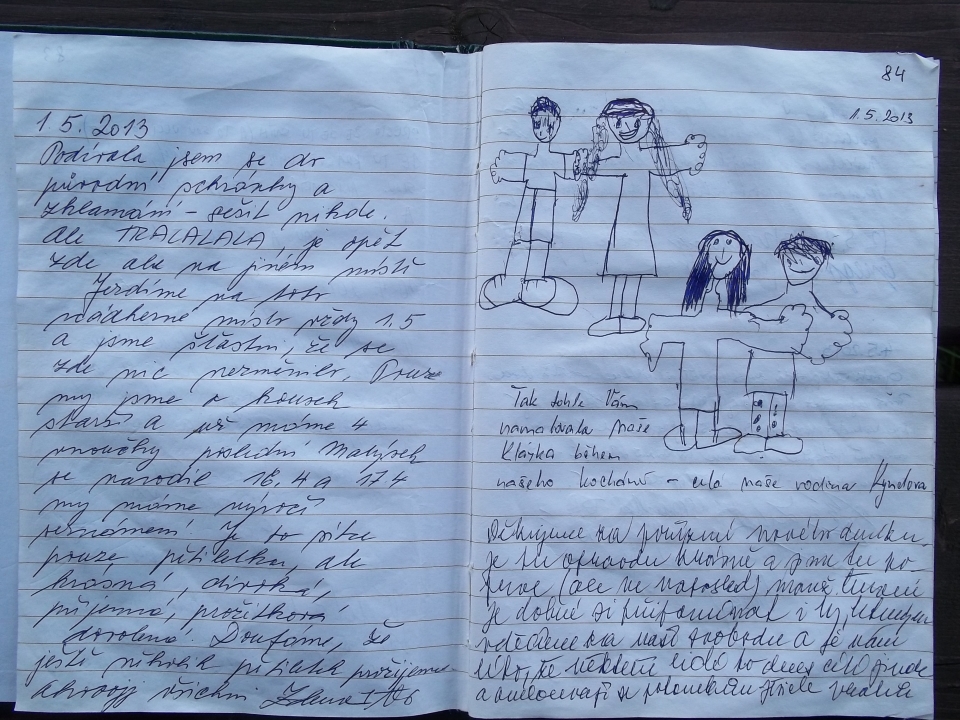 1.5.2013
Podívala jsem se do
původní schránky a
zklamání - sešit nikde.
ale TRALALALA, je opět
zde ale na jiném místě
Jezdíme na toto
nádherné místo vždy 1.5
a jsme šťastni, že se
zde nic nezměnilo. Pouze
my jsme o kousek
starší a už máme 4
vnoučky poslední Matýsek
se narodil 18.4 a 17.4
my máme výročí
seznámení. Je to sice
pouze pětiletka, ale
krásná, divoká,
příjemná, prožitková
dovolená! Doufáme, že
ještě několik pětiletek prožijeme
Ahoooj všichni Zdena
84
1.5.2013
Tak tohle Vám
namalovala naše
Klárka během
našeho kochání - celá naše rodina
Děkujeme za pořízení nového deníku.
je tu opravdu krásně a jsme tu po-
prvé (ale ne naposled)
je dobré si připomínat i ty, kterým
vděčíme za naši svobodu a je nám
líto, že někteří lidé to dnes
a